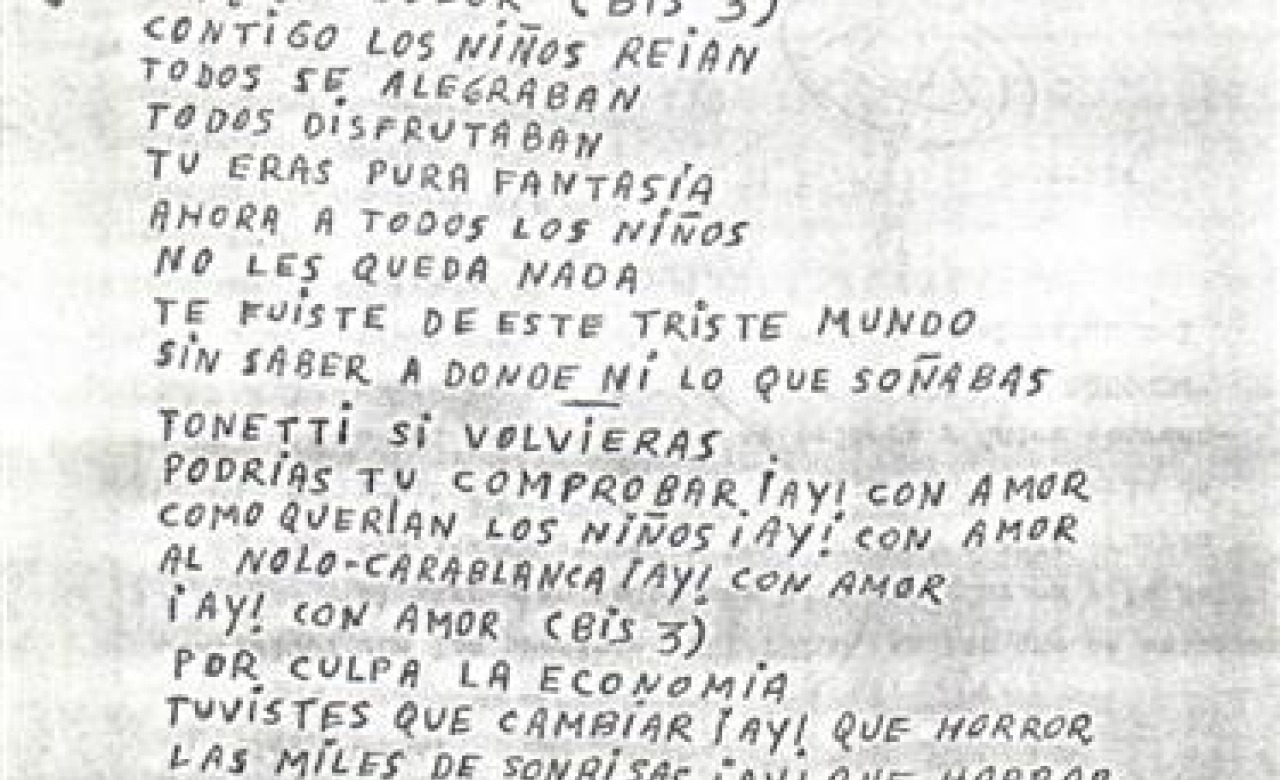 (BIS 3)
CONTIGO LOS NIÑOS REIAN
TODOS SE ALEGRABAN
TODOS DISFRUTABAN
TU ERAS PURA FANTASÍA
AHORA A TODOS LOS NIÑOS
NO LES QUEDA NADA
TE FUISTE DE ESTE TRISTE MUNDO
SIN SABER A DONDE NI LO QUE SOÑABAS
TONETTI SI VOLVIERAS
PODRÍAS TU COMPROBAR ¡AY! CON AMOR
COMO QUERÍAN LOS NIÑOS ¡AY! CON AMOR
AL NOLO-CARABLANCA ¡AY! CON AMOR
¡AY! CON AMOR (BIS 3)
POR CULPA LA ECONOMIA
TUVISTES QUE CAMBIAR ¡AY! QUE HORROR
LAS MILES DE SONRISAS ¡AY! QUE HORROR